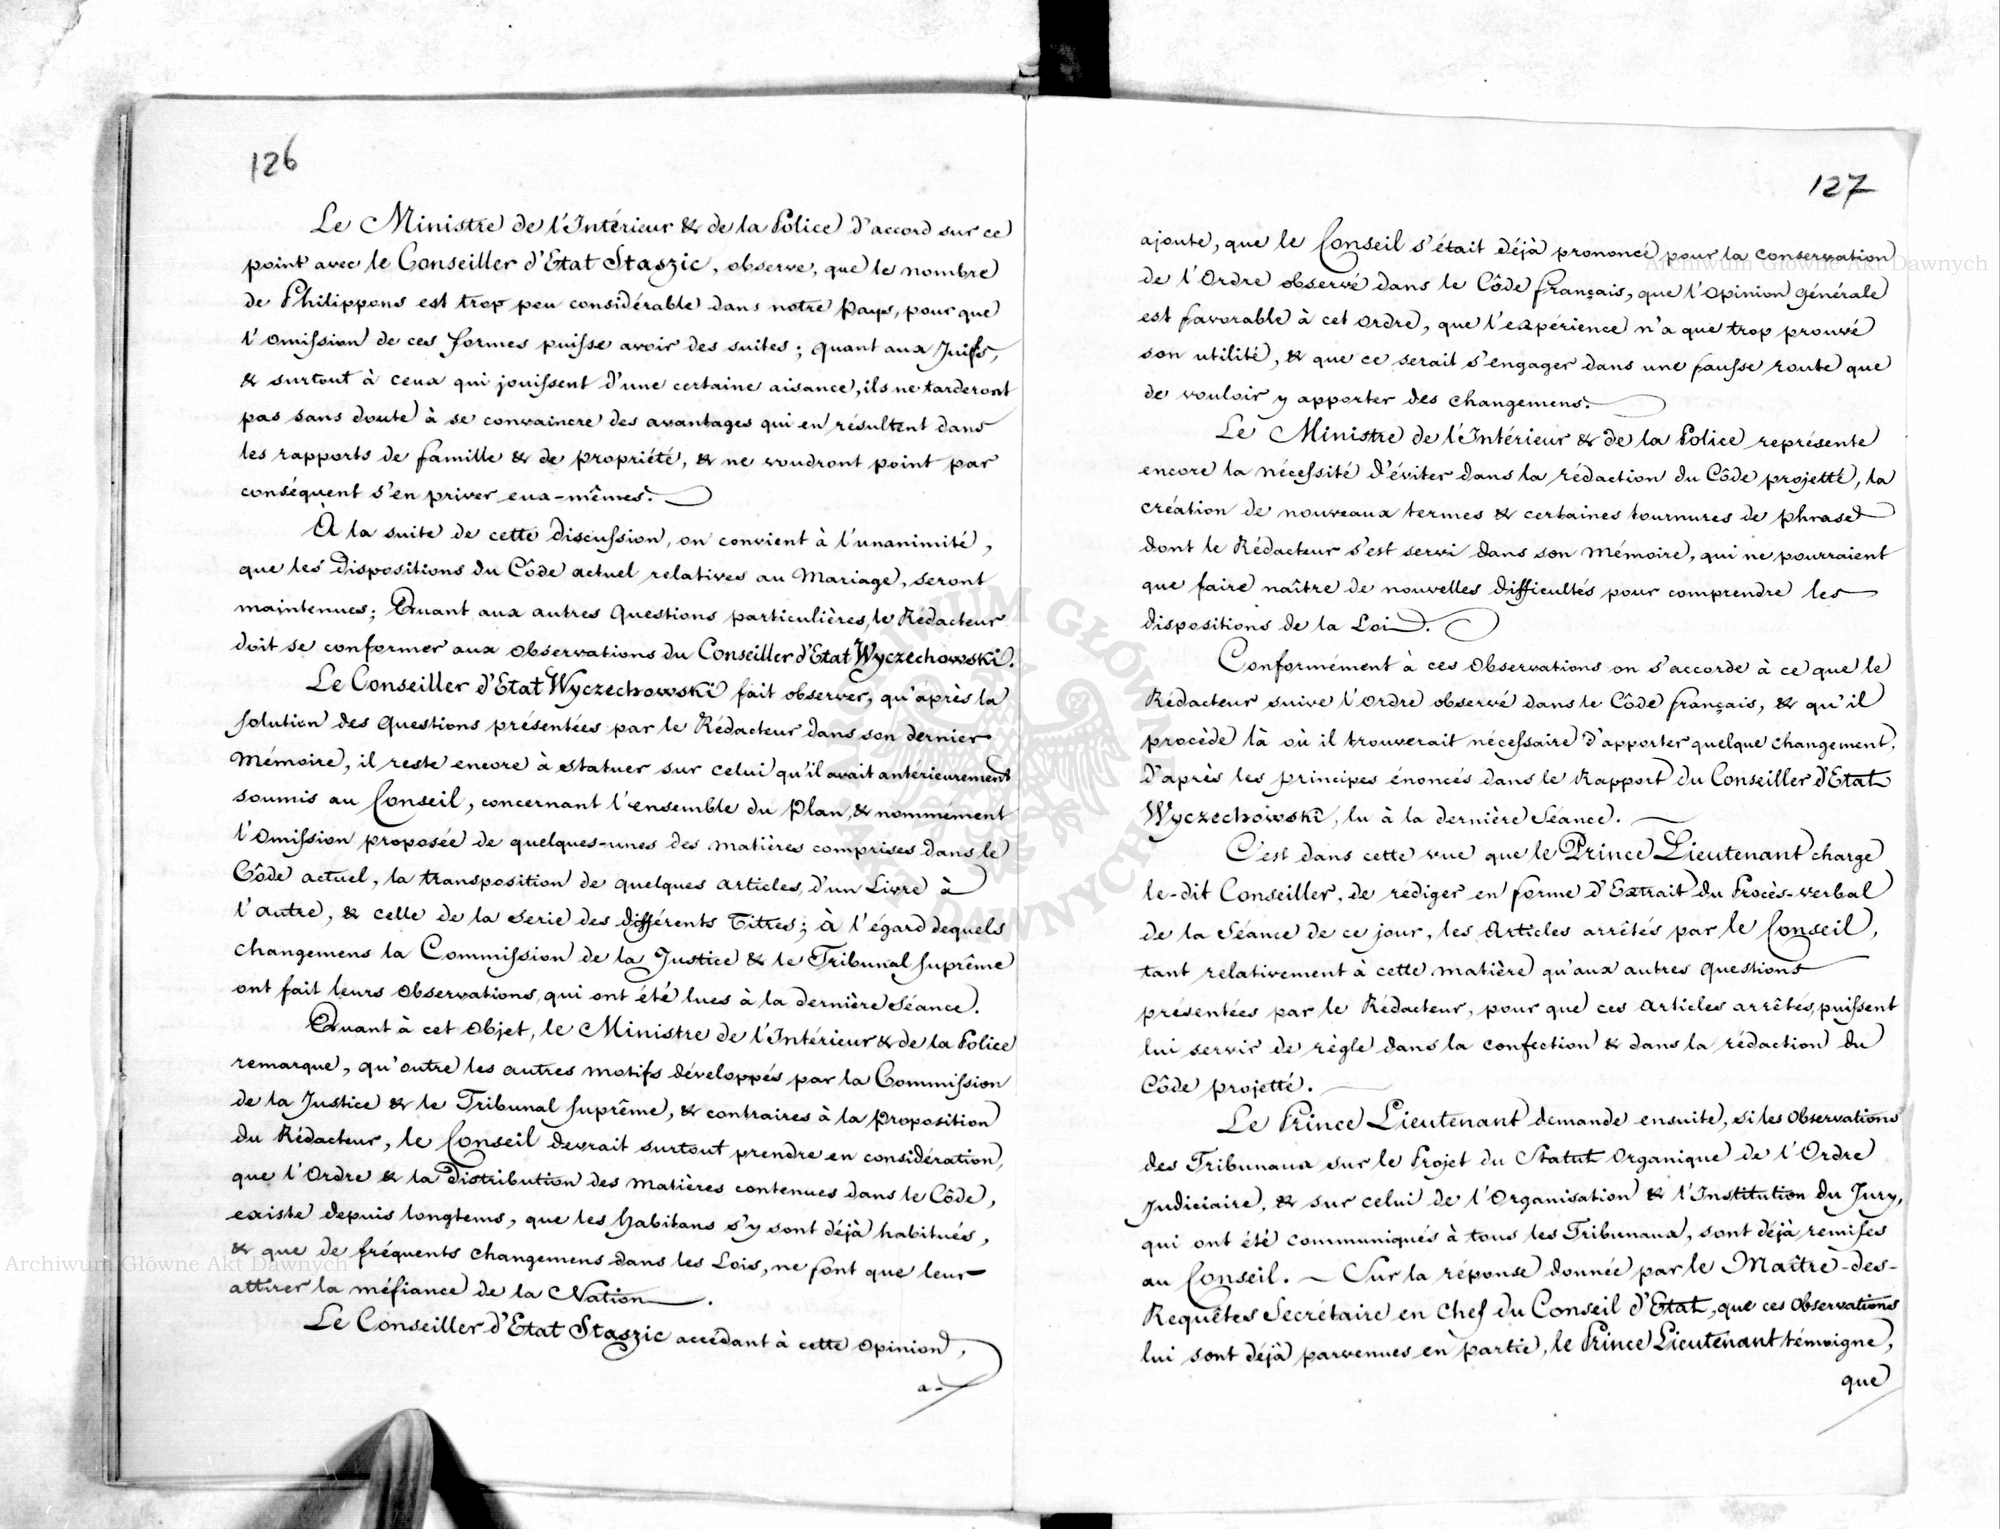 126
Le Ministre de l'Intérieur & de la Police d'accord sur ce
point avec le Conseiller d'Etat Staszic, observe, que le nombre
de Philippons est trop peu considérable dans notre Pays, pour que
l'omission de ces formes puisse avoir des suites; quant aux Juifs,
& surtout à ceux qui jouissent d'une certaine aisance, ils ne tarderont
pas sans doute à se convaincre des avantages qui en résultent dans
les rapports de famille & de propriété, & ne voudront point par
conséquent s'en priver eux-mêmes.
À la suite de cette discussion, on convient à l'unanimité,
que les Dispositions du Côde actuel relatives au Mariage, seront
maintenues; Quant aux autres Questions particulières, le Rédacteur
doit se conformer aux Observations du Conseiller d'Etat Wyczechowski.
Le Conseiller d'Etat Wyczechowski fait observer, qu'après la
solution des Questions présentées par le Rédacteur dans son dernier
Mémoire, il reste encore à statuer sur celui qu'il avait antérieurement
soumis au Conseil, concernant l'ensemble du Plan, & nommément
l'Omission proposée de quelques-unes des matières comprises dans le
Côde actuel, la transposition de quelques articles, d'un Livre à
l'autre, & celle de la serie des différents Titres; à l'égard dequels
changemens la Commission de la Justice & le Tribunal suprême
ont fait leurs Observations, qui ont été lues à la dernière Séance.
Quant à cet Objet, le Ministre de l'Intérieur & de la Police
remarque, qu'outre les autres motifs développés par la Commission
de la Justice & le Tribunal suprême, & contraires à la Proposition
du Rédacteur, le Conseil devrait surtout prendre en considération,
que l'Ordre & la Distribution des Matières contenues dans le Côde,
existe depuis longtems, que les habitans s'y sont déjà habitués,
& que de fréquents changemens dans les Lois, ne font que leur
attirer la méfiance de la Nation.
Le Conseiller d'Etat Staszic accédant à cette Opinion,
a-
127
ajoute, que le Conseil s'était déjà prononcé pour la conservation
de l'Ordre observé dans le Côde français, que l'Opinion générale
est favorable à cet ordre, que l'expérience n'a que trop prouvé
son utilité, & que ce serait s'engager dans une fausse route que
de vouloir y apporter des changemens.
Le Ministre de l'Intérieur & de la Police représente
encore la nécessité d'éviter dans la rédaction du Côde projetté, la
création de nouveaux termes & certaines tournures de phrase
dont le Rédacteur s'est servi dans son Mémoire, qui ne pourraient
que faire naître de nouvelles difficultés pour comprendre les
dispositions de la Loi.
Conformément à ces Observations on s'accorde à ce que le
Rédacteur suive l'Ordre observé dans le Côde français, & qu'il
procède là où il trouverait nécessaire d'apporter quelque changement,
d'après les principes énoncés dans le Rapport du Conseiller d'Etat
Wyczechowski, lu à la dernière Séance.
C'est dans cette vue que le Prince Lieutenant charge
le-dit Conseiller, de rédiger en forme d'Extrait du Procès-verbal
de la Séance de ce jour, les Articles arrêtés par le Conseil,
tant relativement à cette matière qu'aux autres Questions
présentées par le Rédacteur, pour que ces Articles arrêtés, puissent
lui servir de règle dans la confection & dans la rédaction du
Côde projetté.
Le Prince Lieutenant demande ensuite, si les Observations
des Tribunaux sur le Projet du Statut Organique de l'Ordre
Judiciaire, & sur celui de l'Organisation & l'Institution du Jury,
qui ont été communiqués à tous les Tribunaux, sont déjà remises
au Conseil. – Sur la réponse donnée par le Maître-des-
Requêtes Secrétaire en Chef du Conseil d'Etat, que ces Observations
lui sont déjà parvenues en partie, le Prince Lieutenant témoigne,
que
Archiwum Główne Akt Dawnych
Archiwum Główne Akt Dawnych
ARCHIWUM GŁÓWNE AKT DAWNYCH